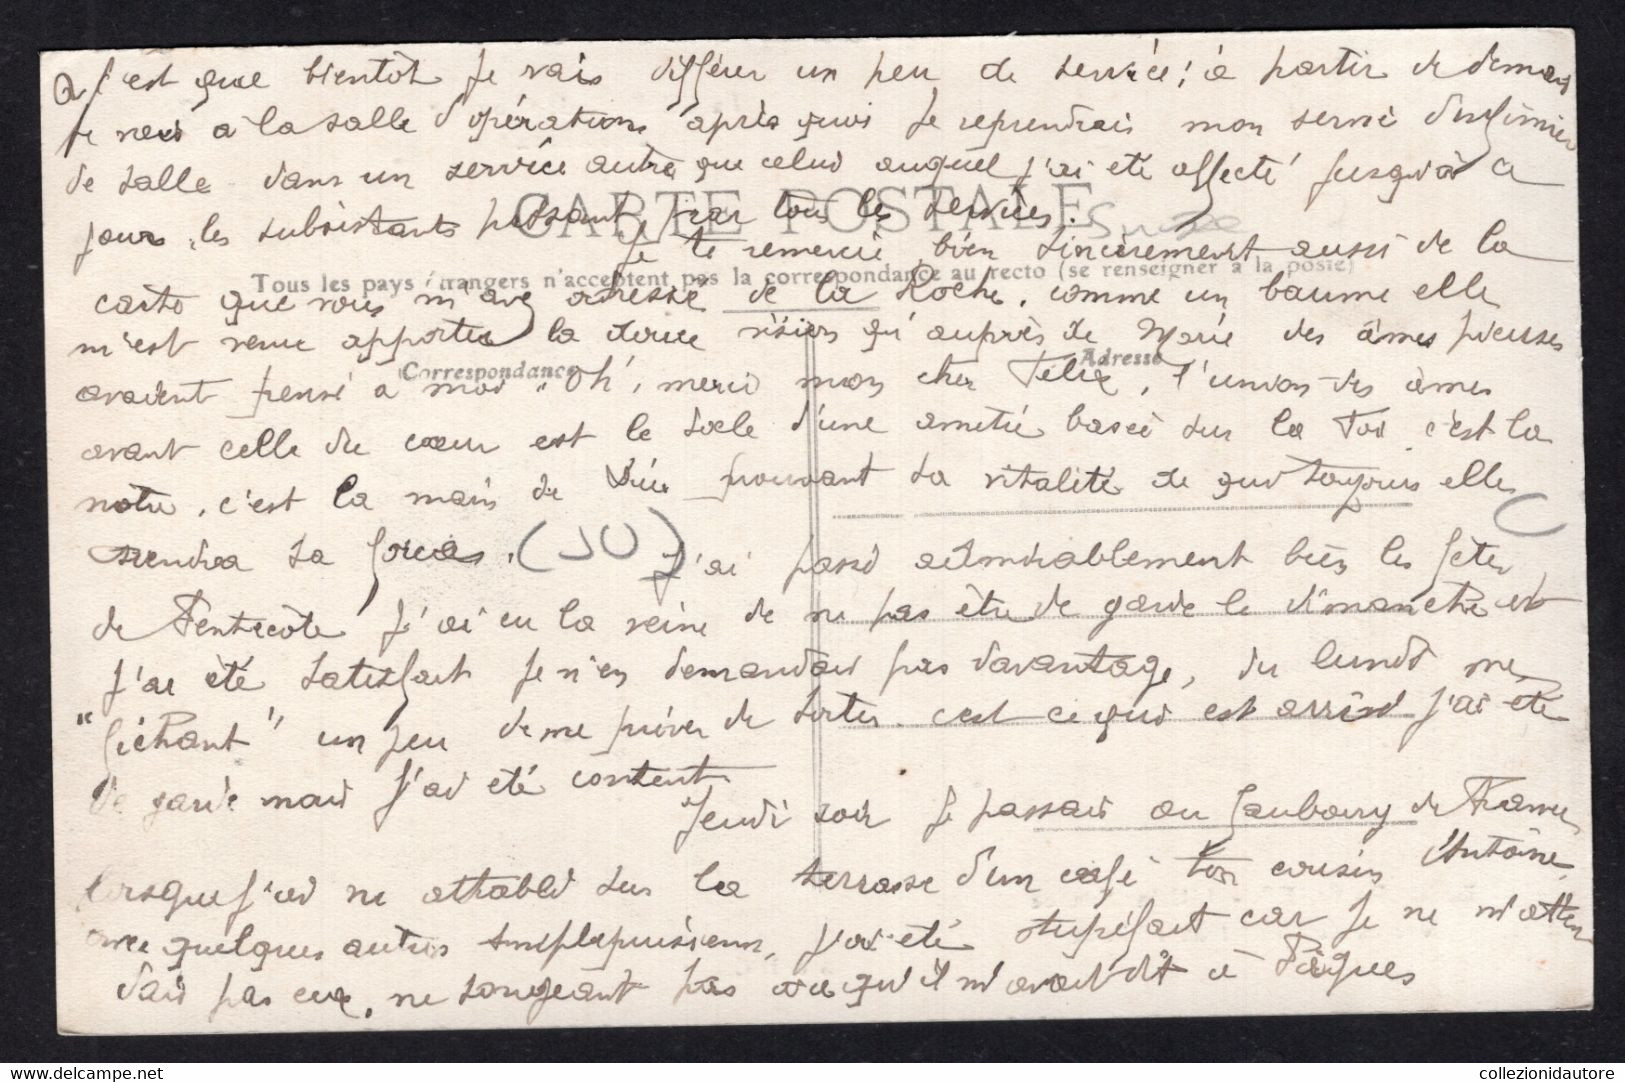 c'est que bientôt je vais différer un peu de service ; à partir de demain
je vais à la salle d'opérations après quoi je reprendrais mon service d'infirmier
de salle dans un service autre que celui auquel j'ai été affecté jusqu'à ce
jour, les subsistants passant par tous les services.
CARTE POSTALE
Suisse
Je te remercie bien sincèrement aussi de la
Tous les pays étrangers n'acceptent pas la correspondance au recto (se renseigner à la poste)
carte que vous m'avez adressé de la Roche, comme un baume elle
m'est venue apporter la douce vision qu'auprès de Marie des âmes pieuses
Correspondance
Adresse
avaient pensé à moi "Oh", merci mon cher Félix, l'union des âmes
avant celle du cœur est le socle d'une amitié basée sur la Foi, c'est la
notre, c'est la main de Dieu prouvant sa vitalité de qui toujours elle
tiendra sa force. (JU)
J'ai passé admirablement bien les fêtes
de Pentecôte j'ai eu la veine de ne pas être de garde le dimanche et
j'ai été satisfait je n'en demandais pas davantage, du lundi me
"fichant" un peu de me priver de sortir. c'est ce qui est arrivé j'ai été
de garde mais j'ai été content
Jeudi soir je passais au faubourg de
lorsque j'ai vu attablé sur la terrasse d'un café ton cousin Antoine,
avec quelques autres j'ai été stupéfait car je ne m'atten
dais pas eux, ne songeant pas à ce qu'il m'avait dit à Pâques
collezionidautore.com